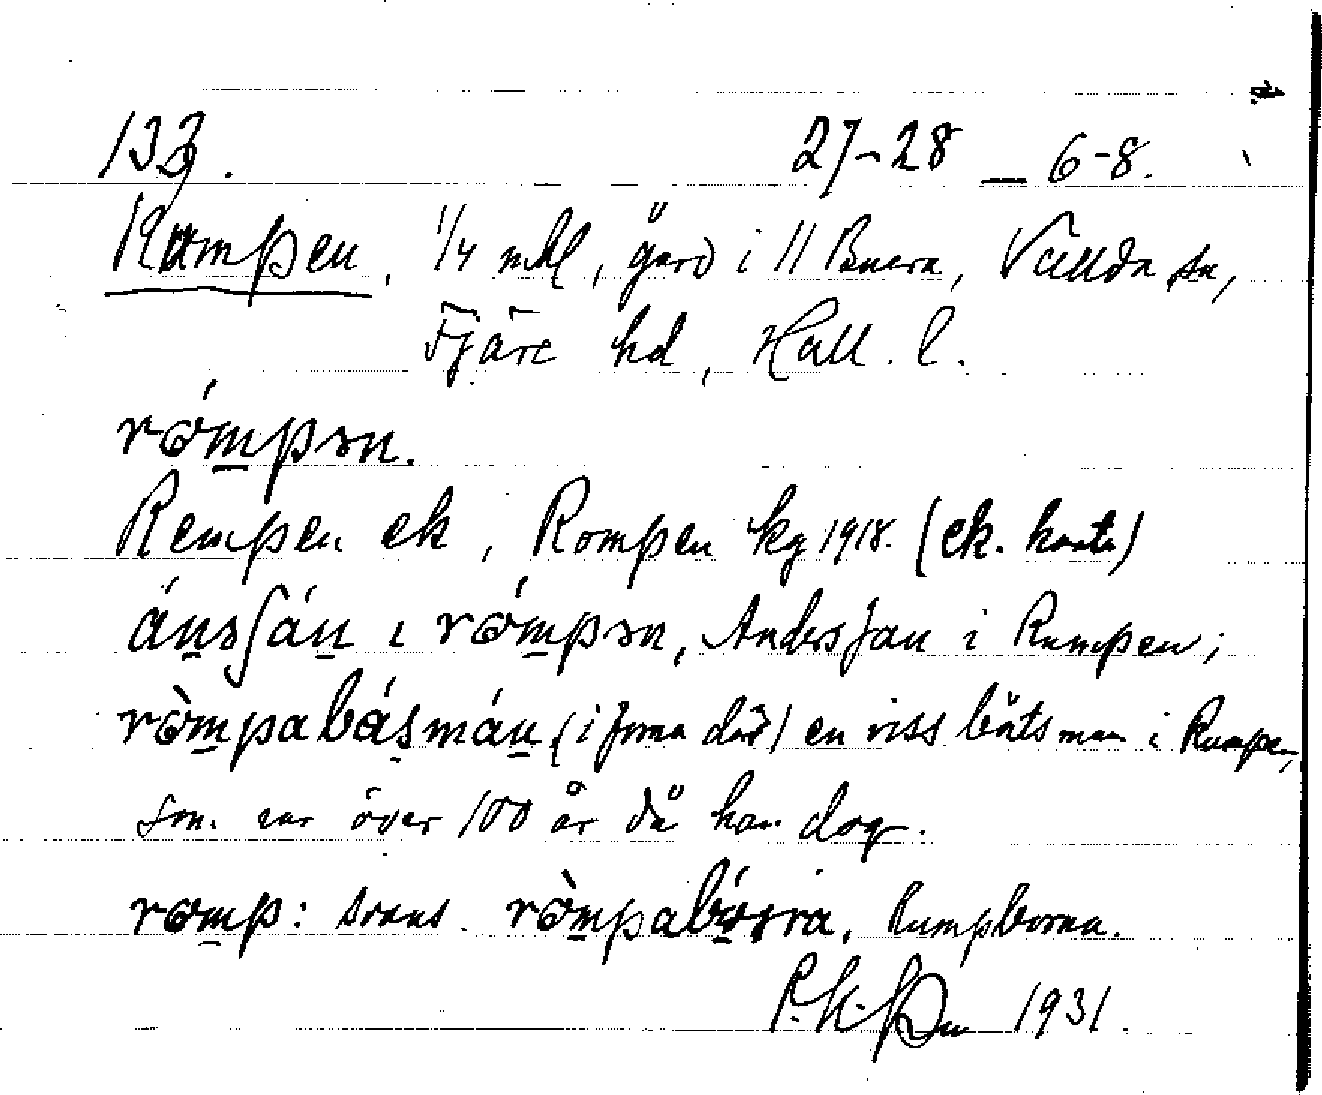 133. 27-28 – 6-8.
Rumpen, 1/4 mtl, gård i 11 Buera, Vallda sn,
Fjäre hd, Hall. l.
rǿmpən.
Rempen ek, Rompen kg 1918. (ek. karta)
ánsʃán ɩ rǿmpən, Anders Jan i Rumpen;
rømpabásmán, (i förra där) en viss båtsman i Rumpen,
som var över 100 år då han dog.
rømp: svans. rømpabósra, Rumpborna.
1931.